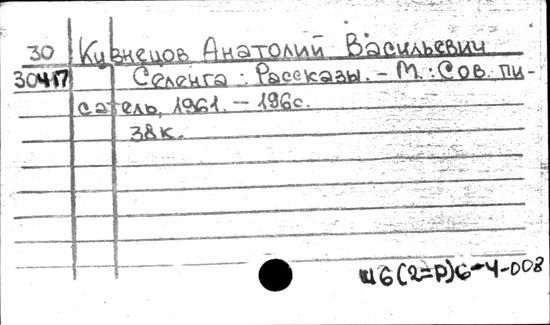 30 Кузнецов Анатолий Васильевич
30417 Селенга: Рассказы. – М.: Сов. пи-
сатель, 1961. – 196с.
38к.
Ш6(2=Р)6-4-008